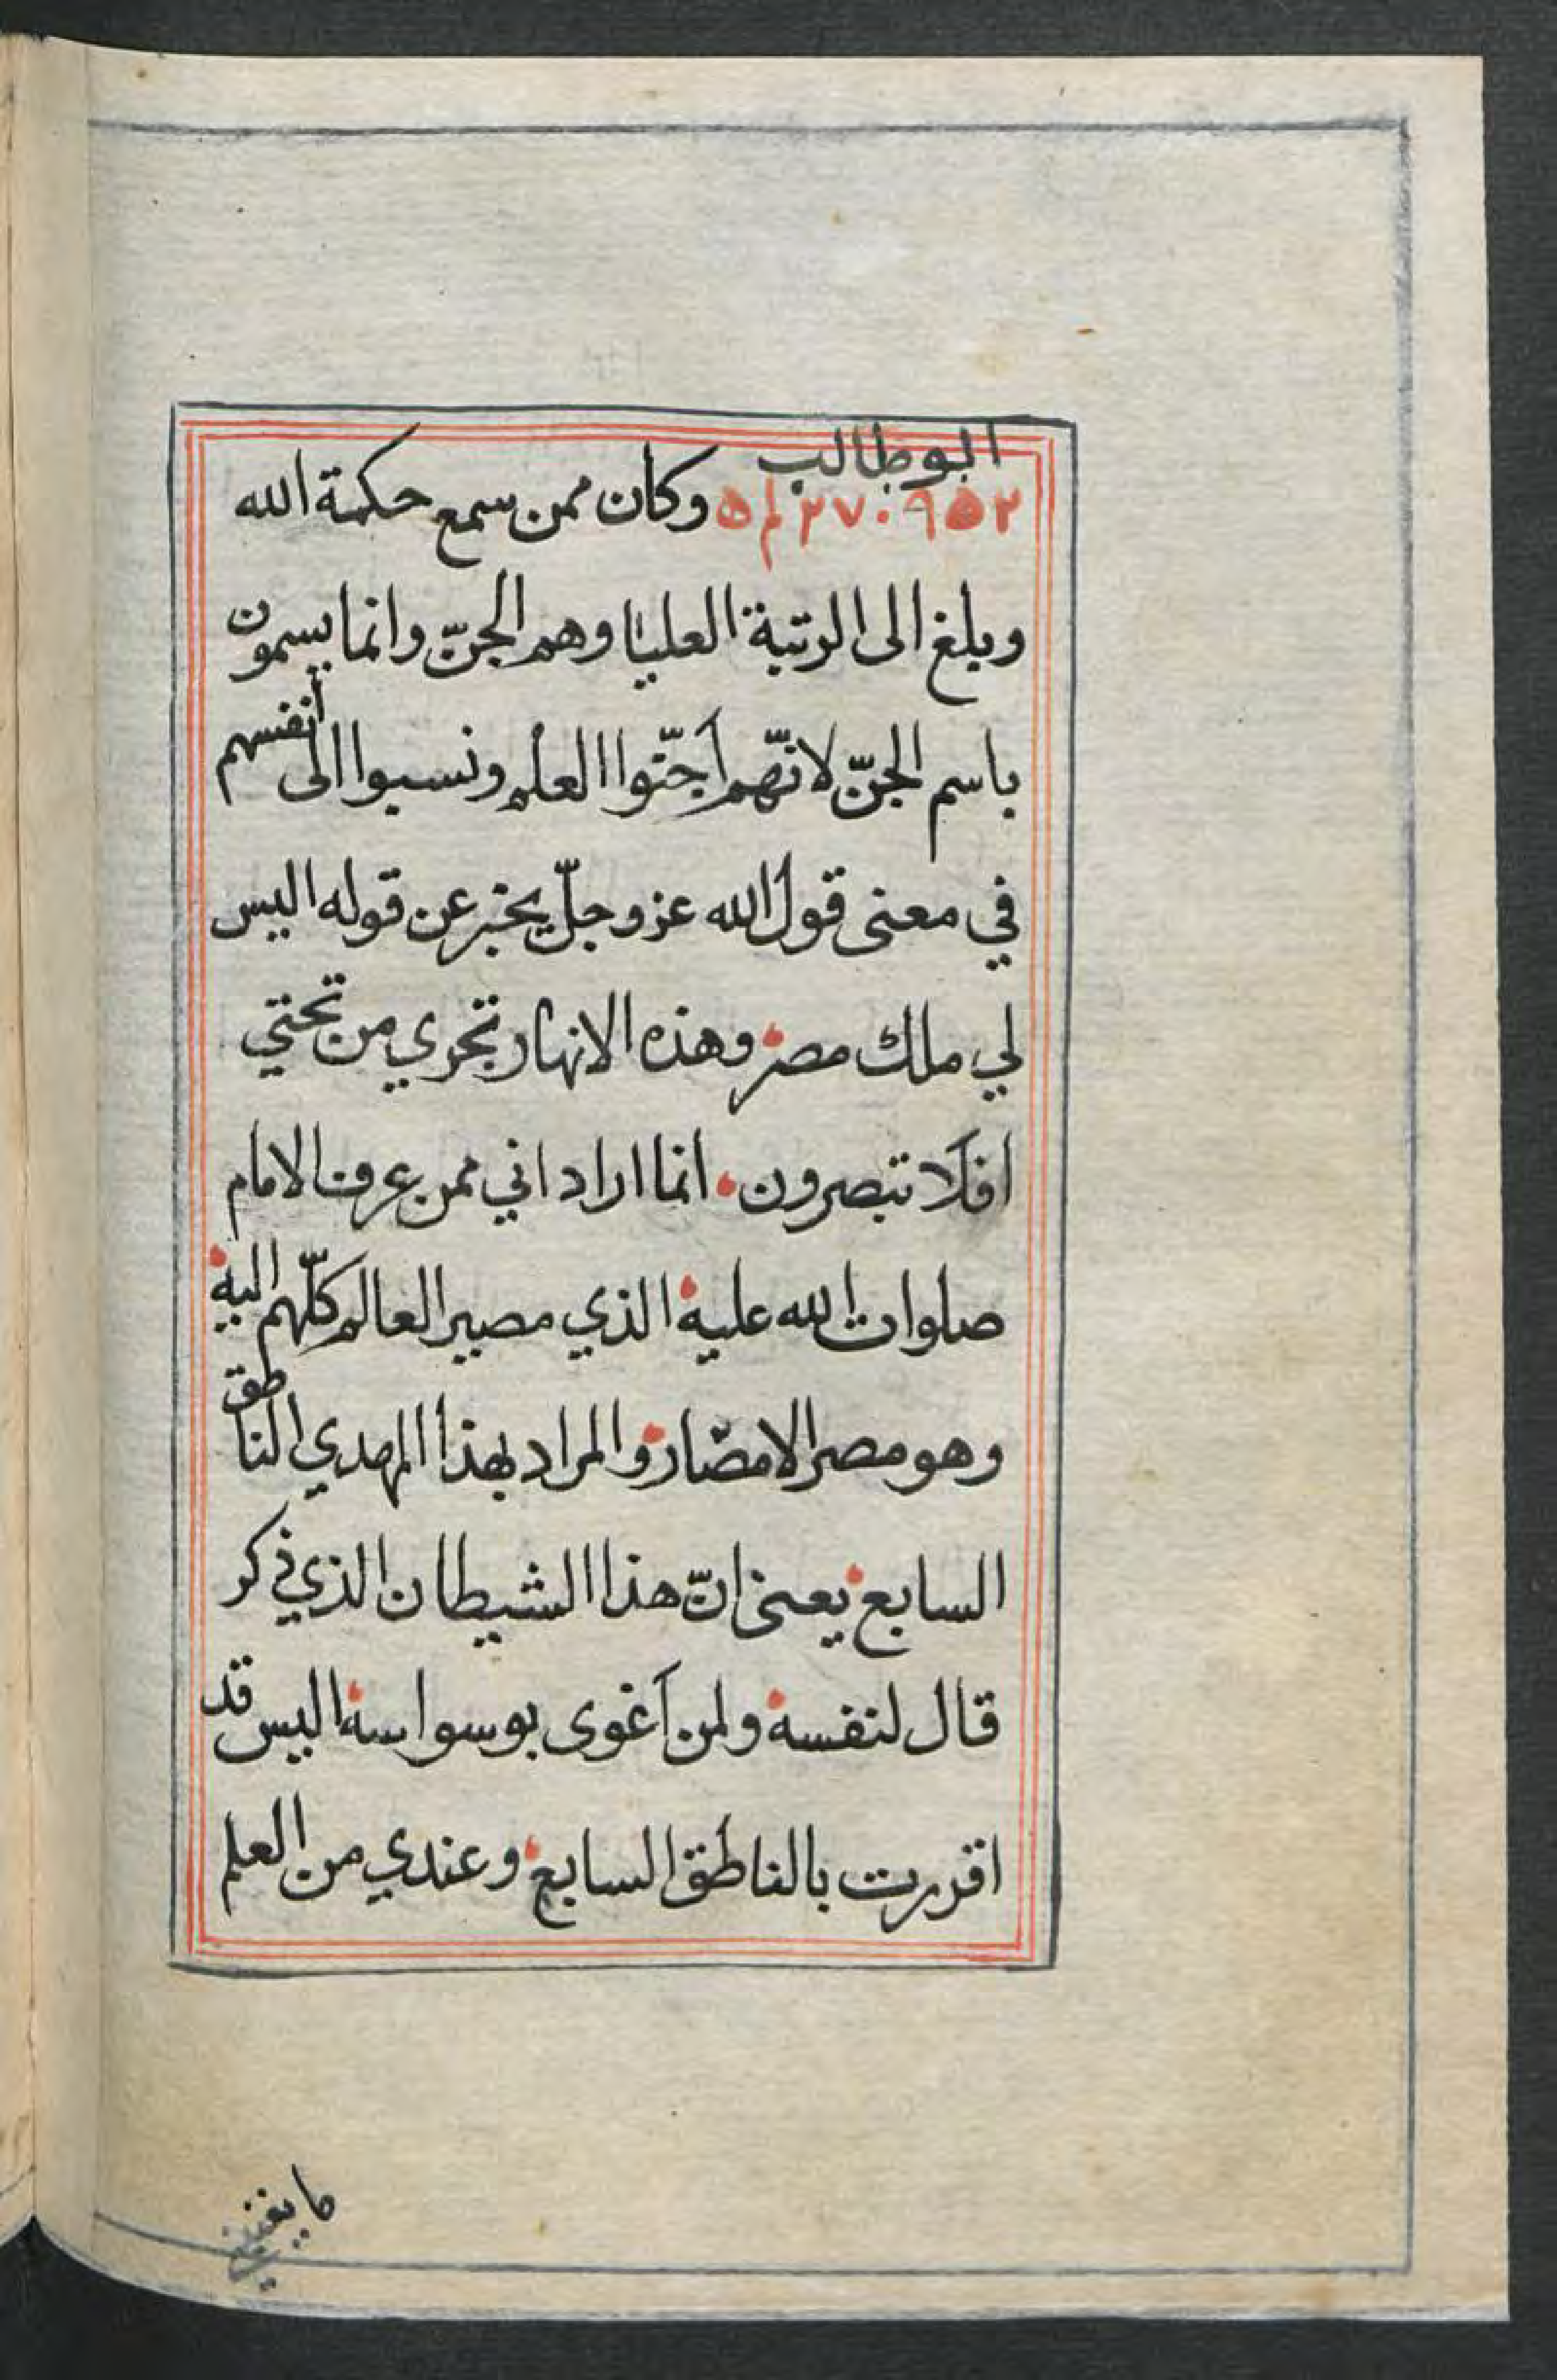 ابو طالب
٢٥٩٠٢٧ وكان ممن سمع حكمة الله
وبلغ الى الرتبة العليا وهم الجنّ وانما يسمون
باسم الجنّ لانّهم أجنّوا العلم ونسبوا الى أنفسهم
في معنى قول الله عز وجلّ يخبر عن قوله اليس
لي ملك مصر وهذه الانهار تجري من تحتي
افلا تبصرون انما اراد اني ممن عرف الامام
صلوات الله عليه الذي مصير العالم كلّهم اليه
وهو مصر الامصار والمراد بهذا المهدي الناطق
السابع يعني انّ هذا الشيطان الذي ذكر
قال لنفسه ولمن أغوى بوسواسه اليس قد
اقررت بالناطق السابع وعندي من العلم
ما يغنيني